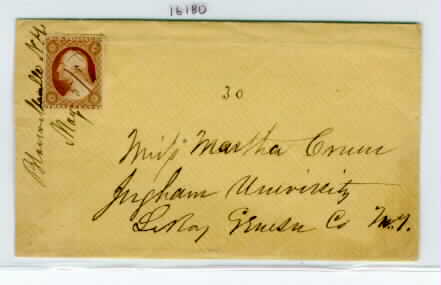 16180
N.Y.
May
30
Miss Martha
Ingham University
LeRoy Genesee Co N.Y.